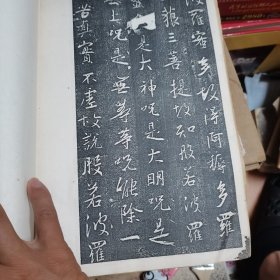 波羅蜜多故得阿耨多羅
藐三菩提故知般若波羅
是大神呪是大明呪是
上呪是無等等呪能除一
苦真實不虛故說般若波羅